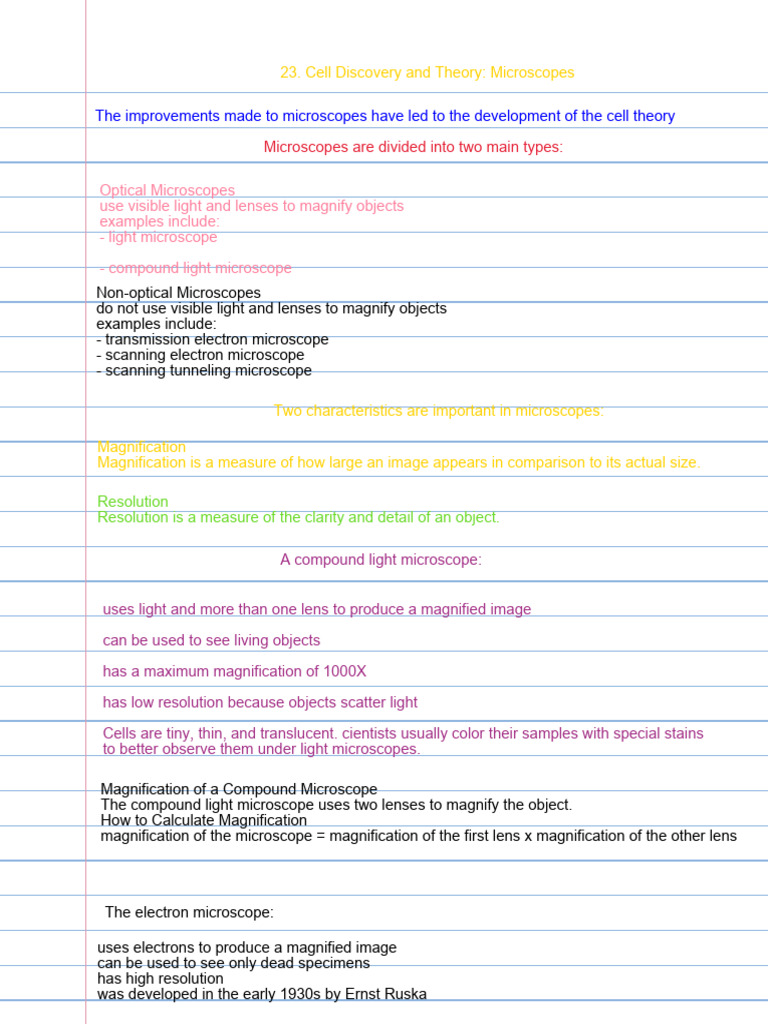 23. Cell Discovery and Theory: Microscopes
The improvements made to microscopes have led to the development of the cell theory
Microscopes are divided into two main types:
Optical Microscopes
use visible light and lenses to magnify objects
examples include:
- light microscope
- compound light microscope
Non-optical Microscopes
do not use visible light and lenses to magnify objects
examples include:
- transmission electron microscope
- scanning electron microscope
- scanning tunneling microscope
Two characteristics are important in microscopes:
Magnification
Magnification is a measure of how large an image appears in comparison to its actual size.
Resolution
Resolution is a measure of the clarity and detail of an object.
A compound light microscope:
uses light and more than one lens to produce a magnified image
can be used to see living objects
has a maximum magnification of 1000X
has low resolution because objects scatter light
Cells are tiny, thin, and translucent. cientists usually color their samples with special stains
to better observe them under light microscopes.
Magnification of a Compound Microscope
The compound light microscope uses two lenses to magnify the object.
How to Calculate Magnification
magnification of the microscope = magnification of the first lens x magnification of the other lens
The electron microscope:
uses electrons to produce a magnified image
can be used to see only dead specimens
has high resolution
was developed in the early 1930s by Ernst Ruska